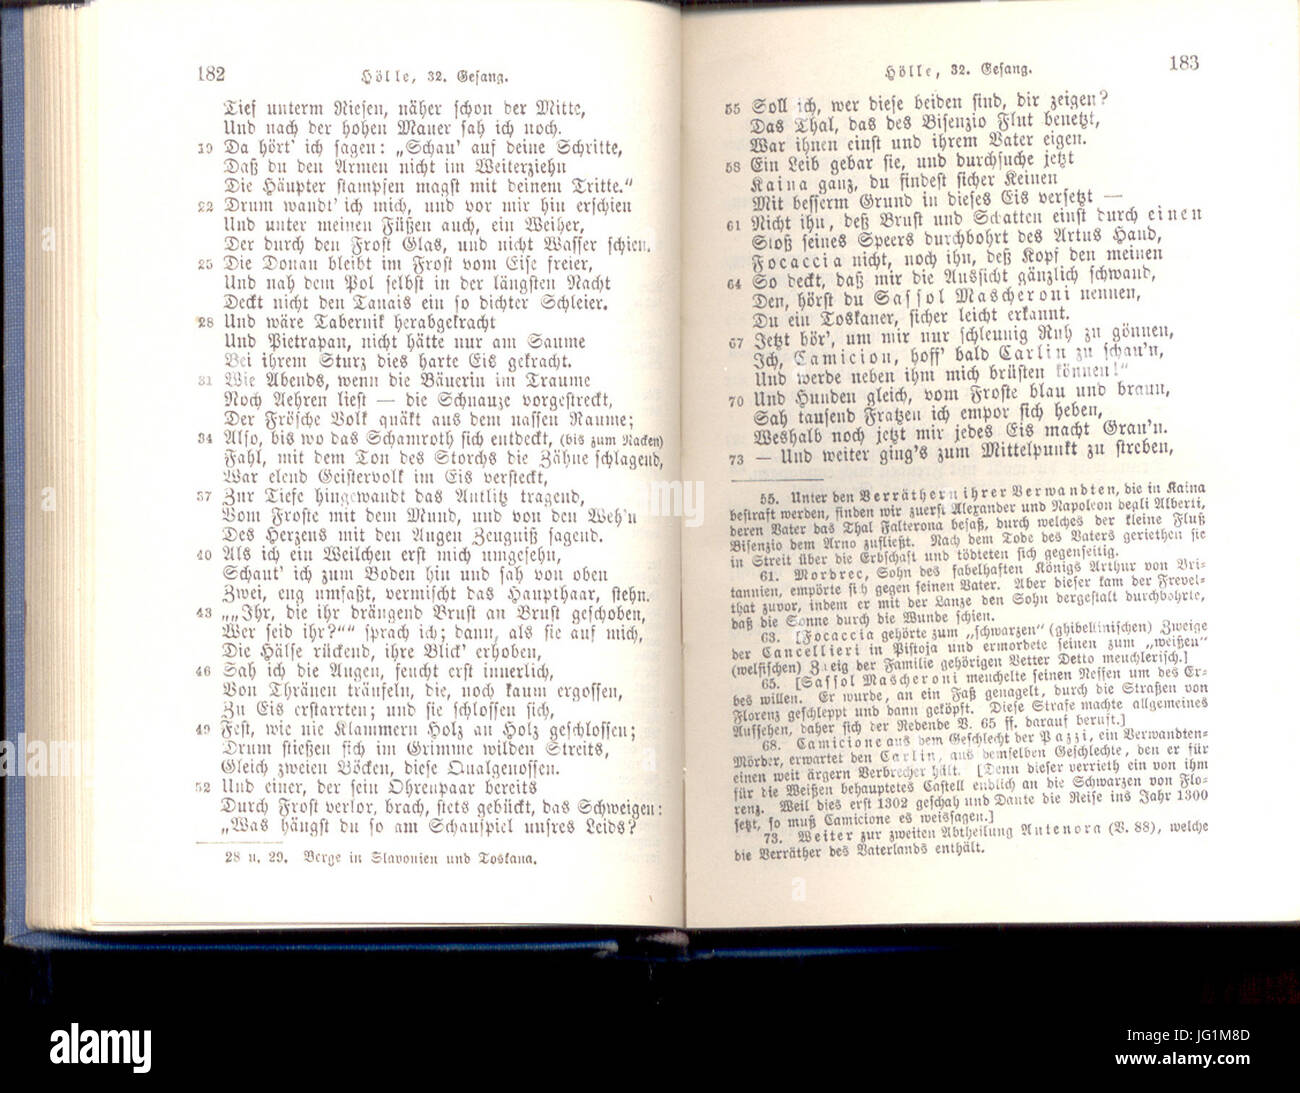 182
Hölle, 32. Gesang.
Tief unterm Riesen, näher schon der Mitte,
Und nach der hohen Mauer sah ich noch.
19 Da hört' ich sagen: „Schau' auf deine Schritte,
Daß du den Armen nicht im Weiterziehn
Die Häupter stampfen magst mit deinem Tritte.“
22 Drum wandt' ich mich, und vor mir hin erschien
Und unter meinen Füßen auch, ein Weiher,
Der durch den Frost Glas, und nicht Wasser schien.
25 Die Donau bleibt im Frost vom Eise freier,
Und nah dem Pol selbst in der längsten Nacht
Deckt nicht den Tanais ein so dichter Schleier.
28 Und wäre Tabernik herabgekracht
Und Pietrapan, nicht hätte nur am Saume
Bei ihrem Sturz dies harte Eis gekracht.
31 Wie Abends, wenn die Bäuerin im Traume
Noch Aehren liest — die Schnauze vorgestreckt,
Der Frösche Volk quäkt aus dem nassen Raume;
34 Also, bis wo das Schamroth sich entdeckt, (bis zum Nacken)
Fahl, mit dem Ton des Storchs die Zähne schlagend,
War elend Geistervolk im Eis versteckt,
37 Zur Tiefe hingewandt das Antlitz tragend,
Vom Froste mit dem Mund, und von den Weh'n
Des Herzens mit den Augen Zeugniß sagend.
40 Als ich ein Weilchen erst mich umgesehn,
Schaut' ich zum Boden hin und sah von oben
Zwei, eng umfaßt, vermischt des Haupthaar, stehn.
43 „„Ihr, die ihr drängend Brust an Brust geschoben,
Wer seid ihr?““ sprach ich; dann, als sie auf mich,
Die Hälse rückend, ihre Blick' erhoben,
46 Sah ich die Augen, feucht erst innerlich,
Von Thränen träufeln, die, noch kaum ergossen,
Zu Eis erstarrten; und sie schlossen sich,
49 Fest, wie nie Klammern Holz an Holz geschlossen;
Drum stießen sich im Grimme wilden Streits,
Gleich zweien Böcken, diese Qualgenossen.
52 Und einer, der sein Ohrenpaar bereits
Durch Frost verlor, brach, stets gebückt, das Schweigen:
„Was hängst du so am Schauspiel unsres Leids?
28 u. 29. Berge in Slavonien und Toskana.
Hölle, 32. Gesang.
183
55 Soll ich, wer diese beiden sind, dir zeigen?
Das Thal, das des Bisenzio Flut benetzt,
War ihnen einst und ihrem Vater eigen.
58 Ein Leib gebar sie, und durchsuche jetzt
Kaina ganz, du findest sicher Keinen
Mit besserm Grund in dieses Eis versetzt —
61 Nicht ihn, deß Brust und Schatten einst durch einen
Stoß seines Speers durchbohrt des Artus Hand,
Focaccia nicht, noch ihn, deß Kopf den meinen
64 So deckt, daß mir die Aussicht gänzlich schwand,
Den, hörst du Sassol Mascheroni nennen,
Du ein Toskaner, sicher leicht erkannt.
67 Jetzt hör', um mir nur schleunig Ruh zu gönnen,
Ich, Camicion, hoff' bald Carlin zu schau'n,
Und werde neben ihm mich brüsten können!“
70 Und Hunden gleich, vom Froste blau und braun,
Sah tausend Fratzen ich empor sich heben,
Weshalb noch jetzt mir jedes Eis macht Grau'n.
73 — Und weiter ging's zum Mittelpunkt zu streben,
55. Unter den Verräthern ihrer Verwandten, die in Kaina
bestraft werden, finden wir zuerst Alexander und Napoleon degli Alberti,
deren Vater das Thal Falterona besaß, durch welches der kleine Fluß
Bisenzio dem Arno zufließt. Nach dem Tode des Vaters geriethen sie
in Streit über die Erbschaft und tödteten sich gegenseitig.
61. Mordrec, Sohn des fabelhaften Königs Arthur von Bri-
tannien, empörte sich gegen seinen Vater. Aber dieser kam der Frevel-
that zuvor, indem er mit der Lanze den Sohn dergestalt durchbohrte,
daß die Sonne durch die Wunde schien.
63. [Focaccia gehörte zum „schwarzen“ (ghibellinischen) Zweige
der Cancellieri in Pistoja und ermordete seinen zum „weißen“
(welfischen) Zweig der Familie gehörigen Vetter Detto meuchlerisch.]
65. [Sassol Mascheroni meuchelte seinen Neffen um des Er-
bes willen. Er wurde, an ein Faß genagelt, durch die Straßen von
Florenz geschleppt und dann geköpft. Diese Strafe machte allgemeines
Aufsehen, daher sich der Redende V. 65 ff. darauf beruft.]
68. Camicione aus dem Geschlecht der Pazzi, ein Verwandten-
Mörder, erwartet den Carlin, aus demselben Geschlechte, den er für
einen weit ärgern Verbrecher hält. [Denn dieser verrieth ein von ihm
für die Weißen behauptetes Castell endlich an die Schwarzen von Flo-
renz. Weil dies erst 1302 geschah und Dante die Reise ins Jahr 1300
setzt, so muß Camicione es weissagen.]
73. Weiter zur zweiten Abtheilung Antenora (V. 88), welche
die Verräther des Vaterlands enthält.
alamy
alamy
Image ID: JG1M8D
www.alamy.com